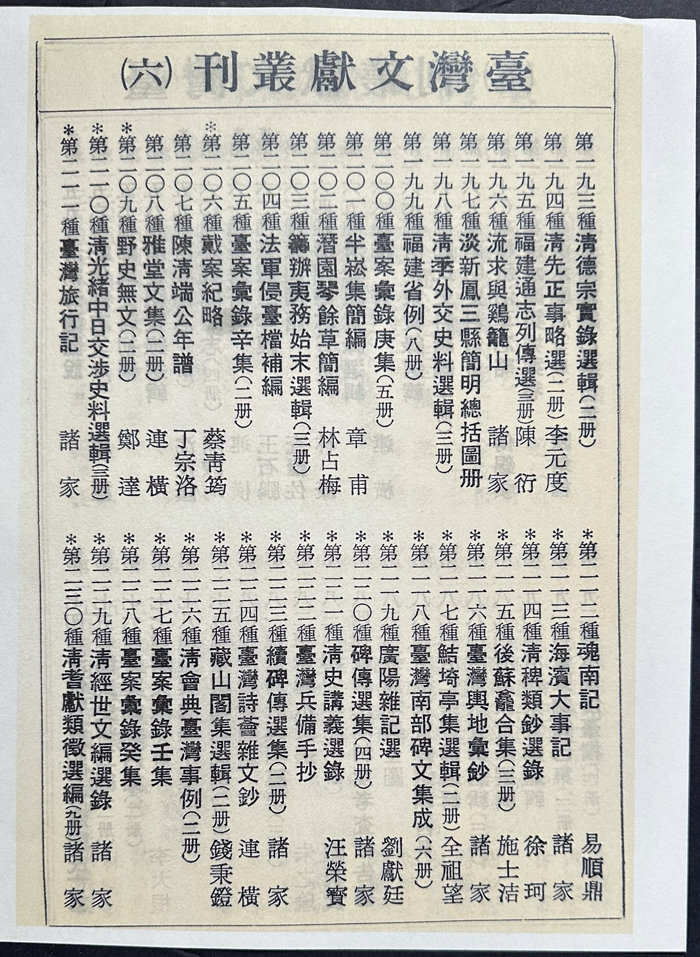 臺灣文獻叢刊(六)
第一九三種清德宗實錄選輯(二册)
第一九四種清先正事略選(二册)李元度
第一九五種福建通志列傳選(三册)陳 衍
第一九六種流求與鷄籠山 諸 家
第一九七種淡新鳳三縣簡明總括圖册
第一九八種清季外交史料選輯(三册)
第一九九種福建省例(八册)
第二〇〇種臺案彙錄庚集(五册)
第二〇一種半崧集簡編 章 甫
第二〇二種潛園琴餘草簡編 林占梅
第二〇三種籌辦夷務始末選輯(三册)
第二〇四種法軍侵臺檔補編
第二〇五種臺案彙錄辛集(二册)
*第二〇六種戴案紀略 蔡青筠
第二〇七種陳清端公年譜 丁宗洛
第二〇八種雅堂文集(二册) 連 橫
*第二〇九種野史無文(二册) 鄭 達
*第二一〇種清光緒中日交涉史料選輯(三册)
*第二一一種臺灣旅行記 諸 家
*第二一二種魂南記 易順鼎
*第二一三種海濱大事記 諸 家
*第二一四種清稗類鈔選錄 徐 珂
*第二一五種後蘇龕合集(三册) 施士洁
*第二一六種臺灣輿地彙鈔 諸 家
*第二一七種鮚埼亭集選輯(二册)全祖望
*第二一八種臺灣南部碑文集成(六册)
*第二一九種廣陽雜記選 劉獻廷
*第二二〇種碑傳選集(四册) 諸 家
*第二二一種清史講義選錄 汪榮寶
*第二二二種臺灣兵備手抄
*第二二三種續碑傳選集(二册) 諸 家
*第二二四種臺灣詩薈雜文鈔 連 橫
*第二二五種藏山閣集選輯(二册)錢秉鐙
*第二二六種清會典臺灣事例(二册)
*第二二七種臺案彙錄壬集
*第二二八種臺案彙錄癸集
*第二二九種清經世文編選錄 諸 家
*第二三〇種清耆獻類徵選編(九册)諸 家